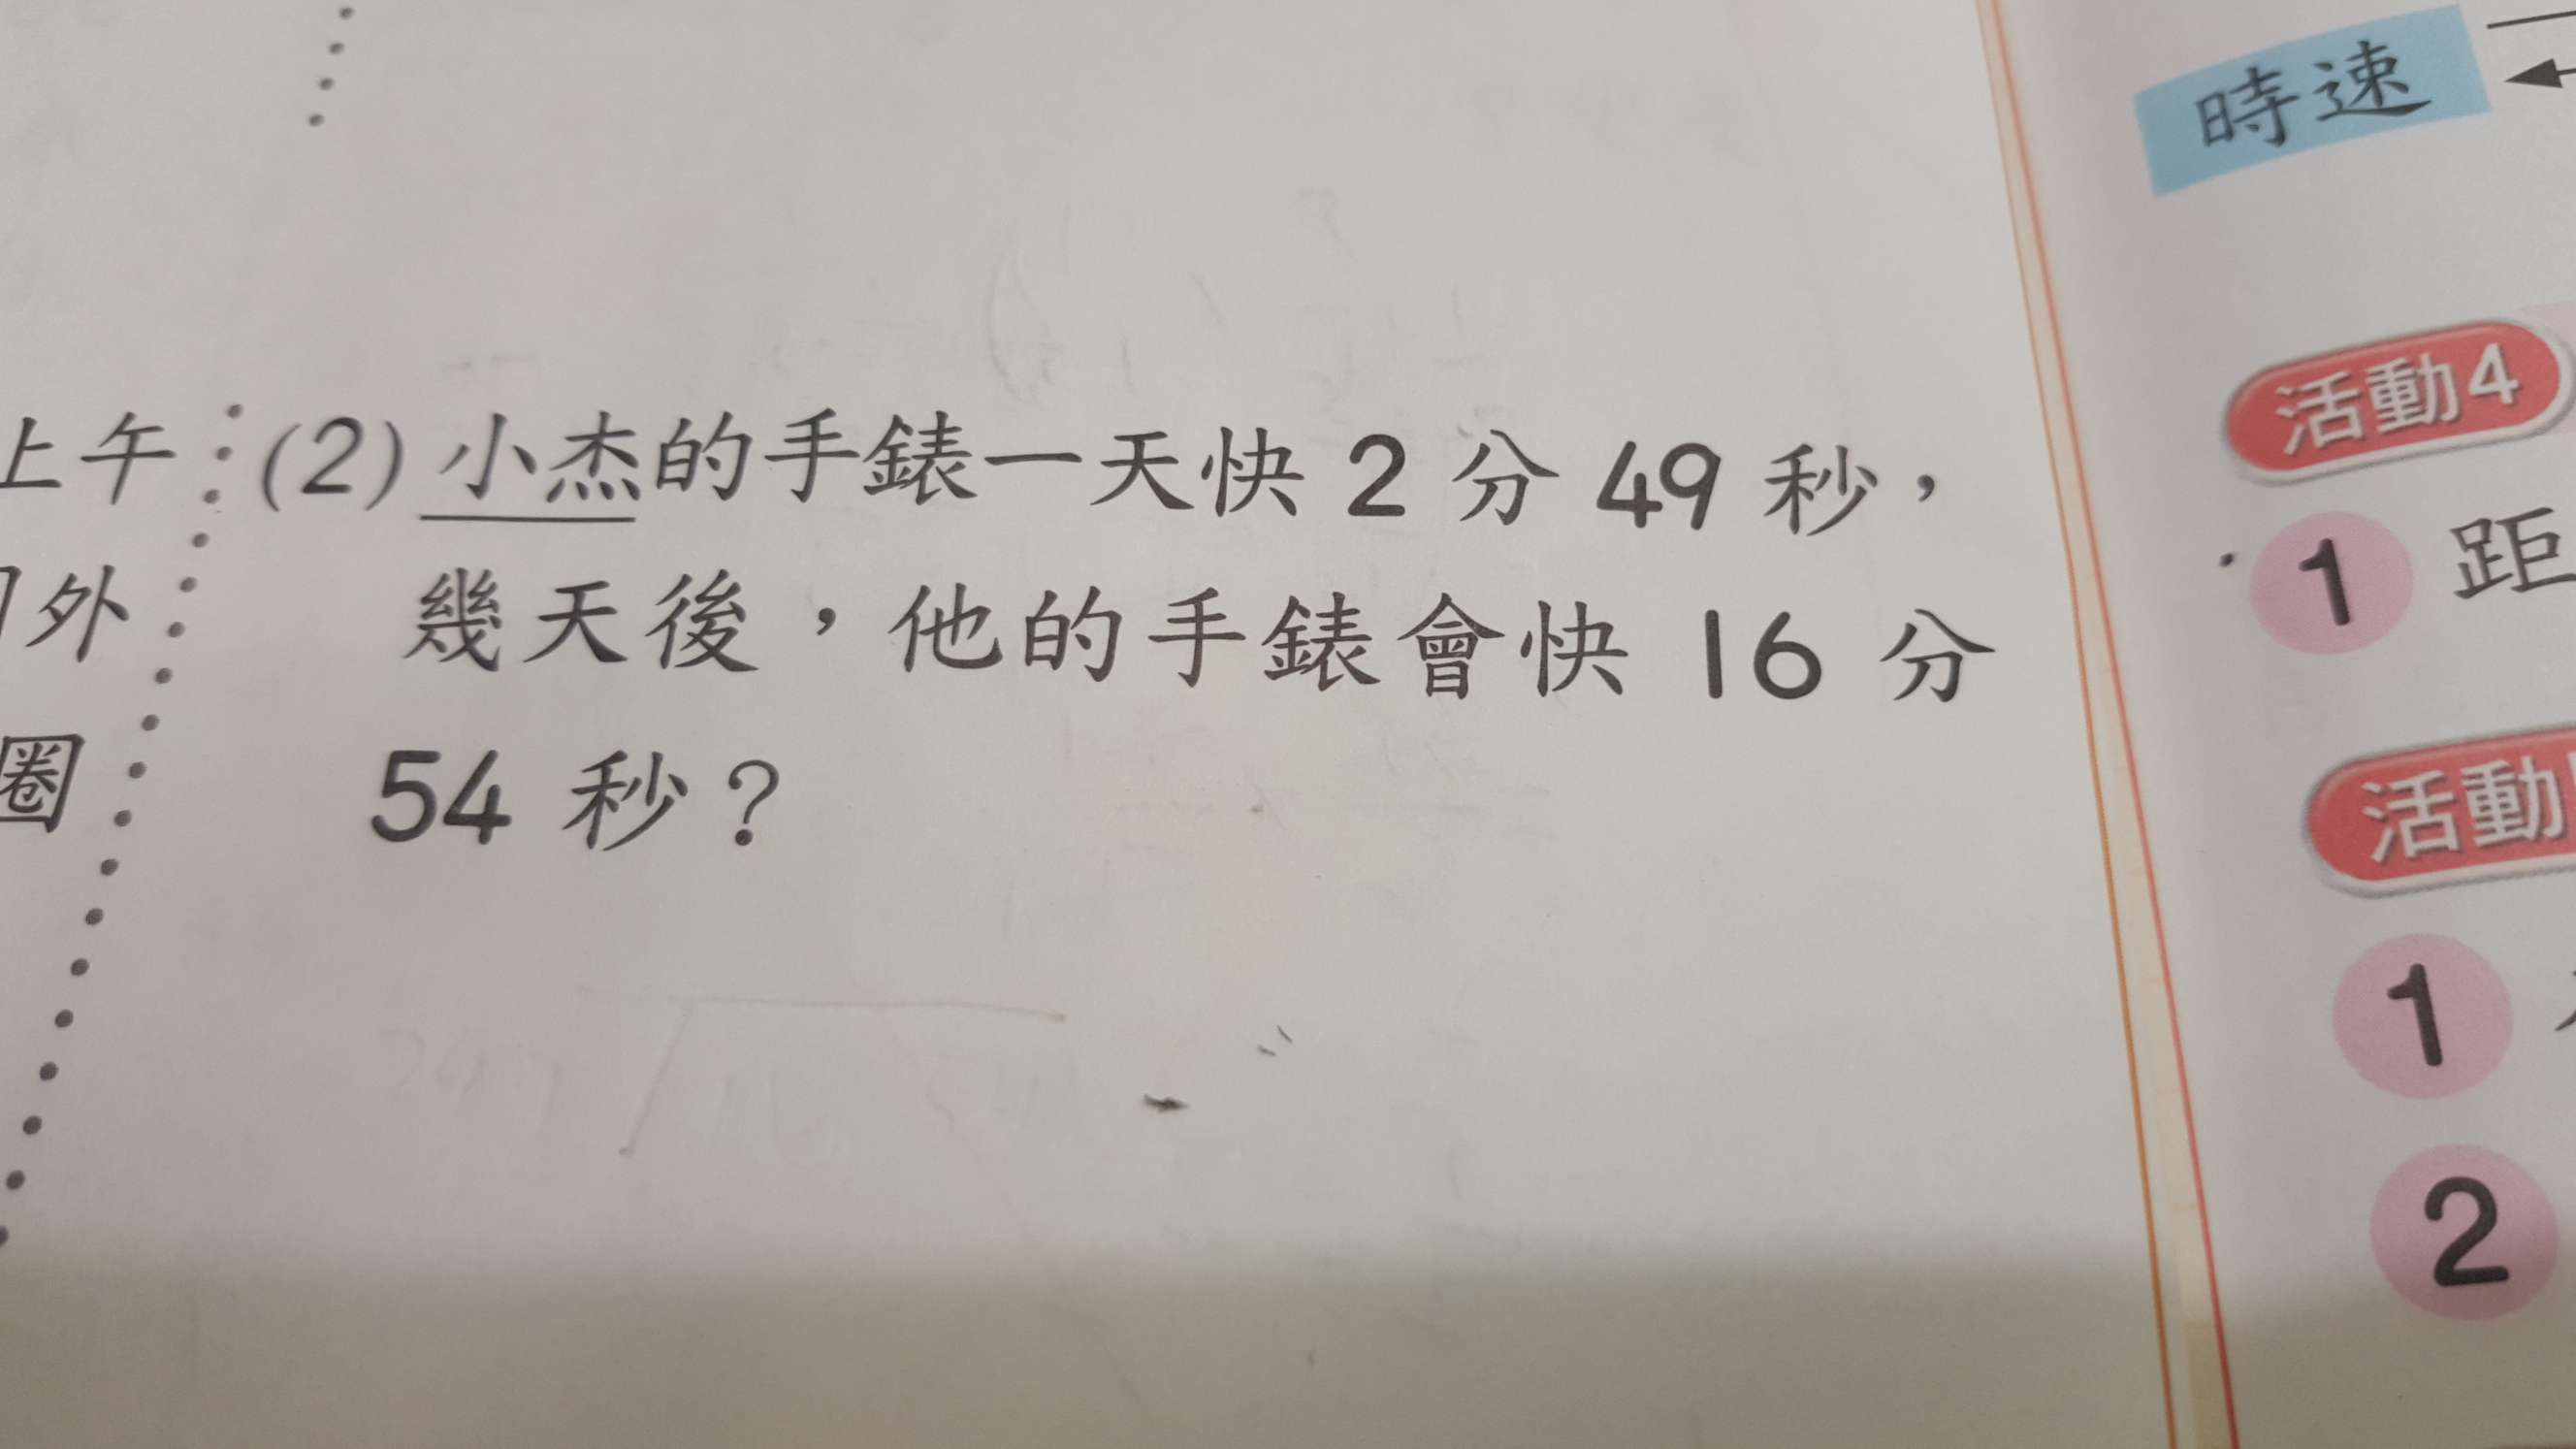 上午
外
圈
(2) 小杰的手錶一天快 2 分 49 秒，
幾天後，他的手錶會快 16 分
54 秒？
時速
活動4
1 距
活動
1
2